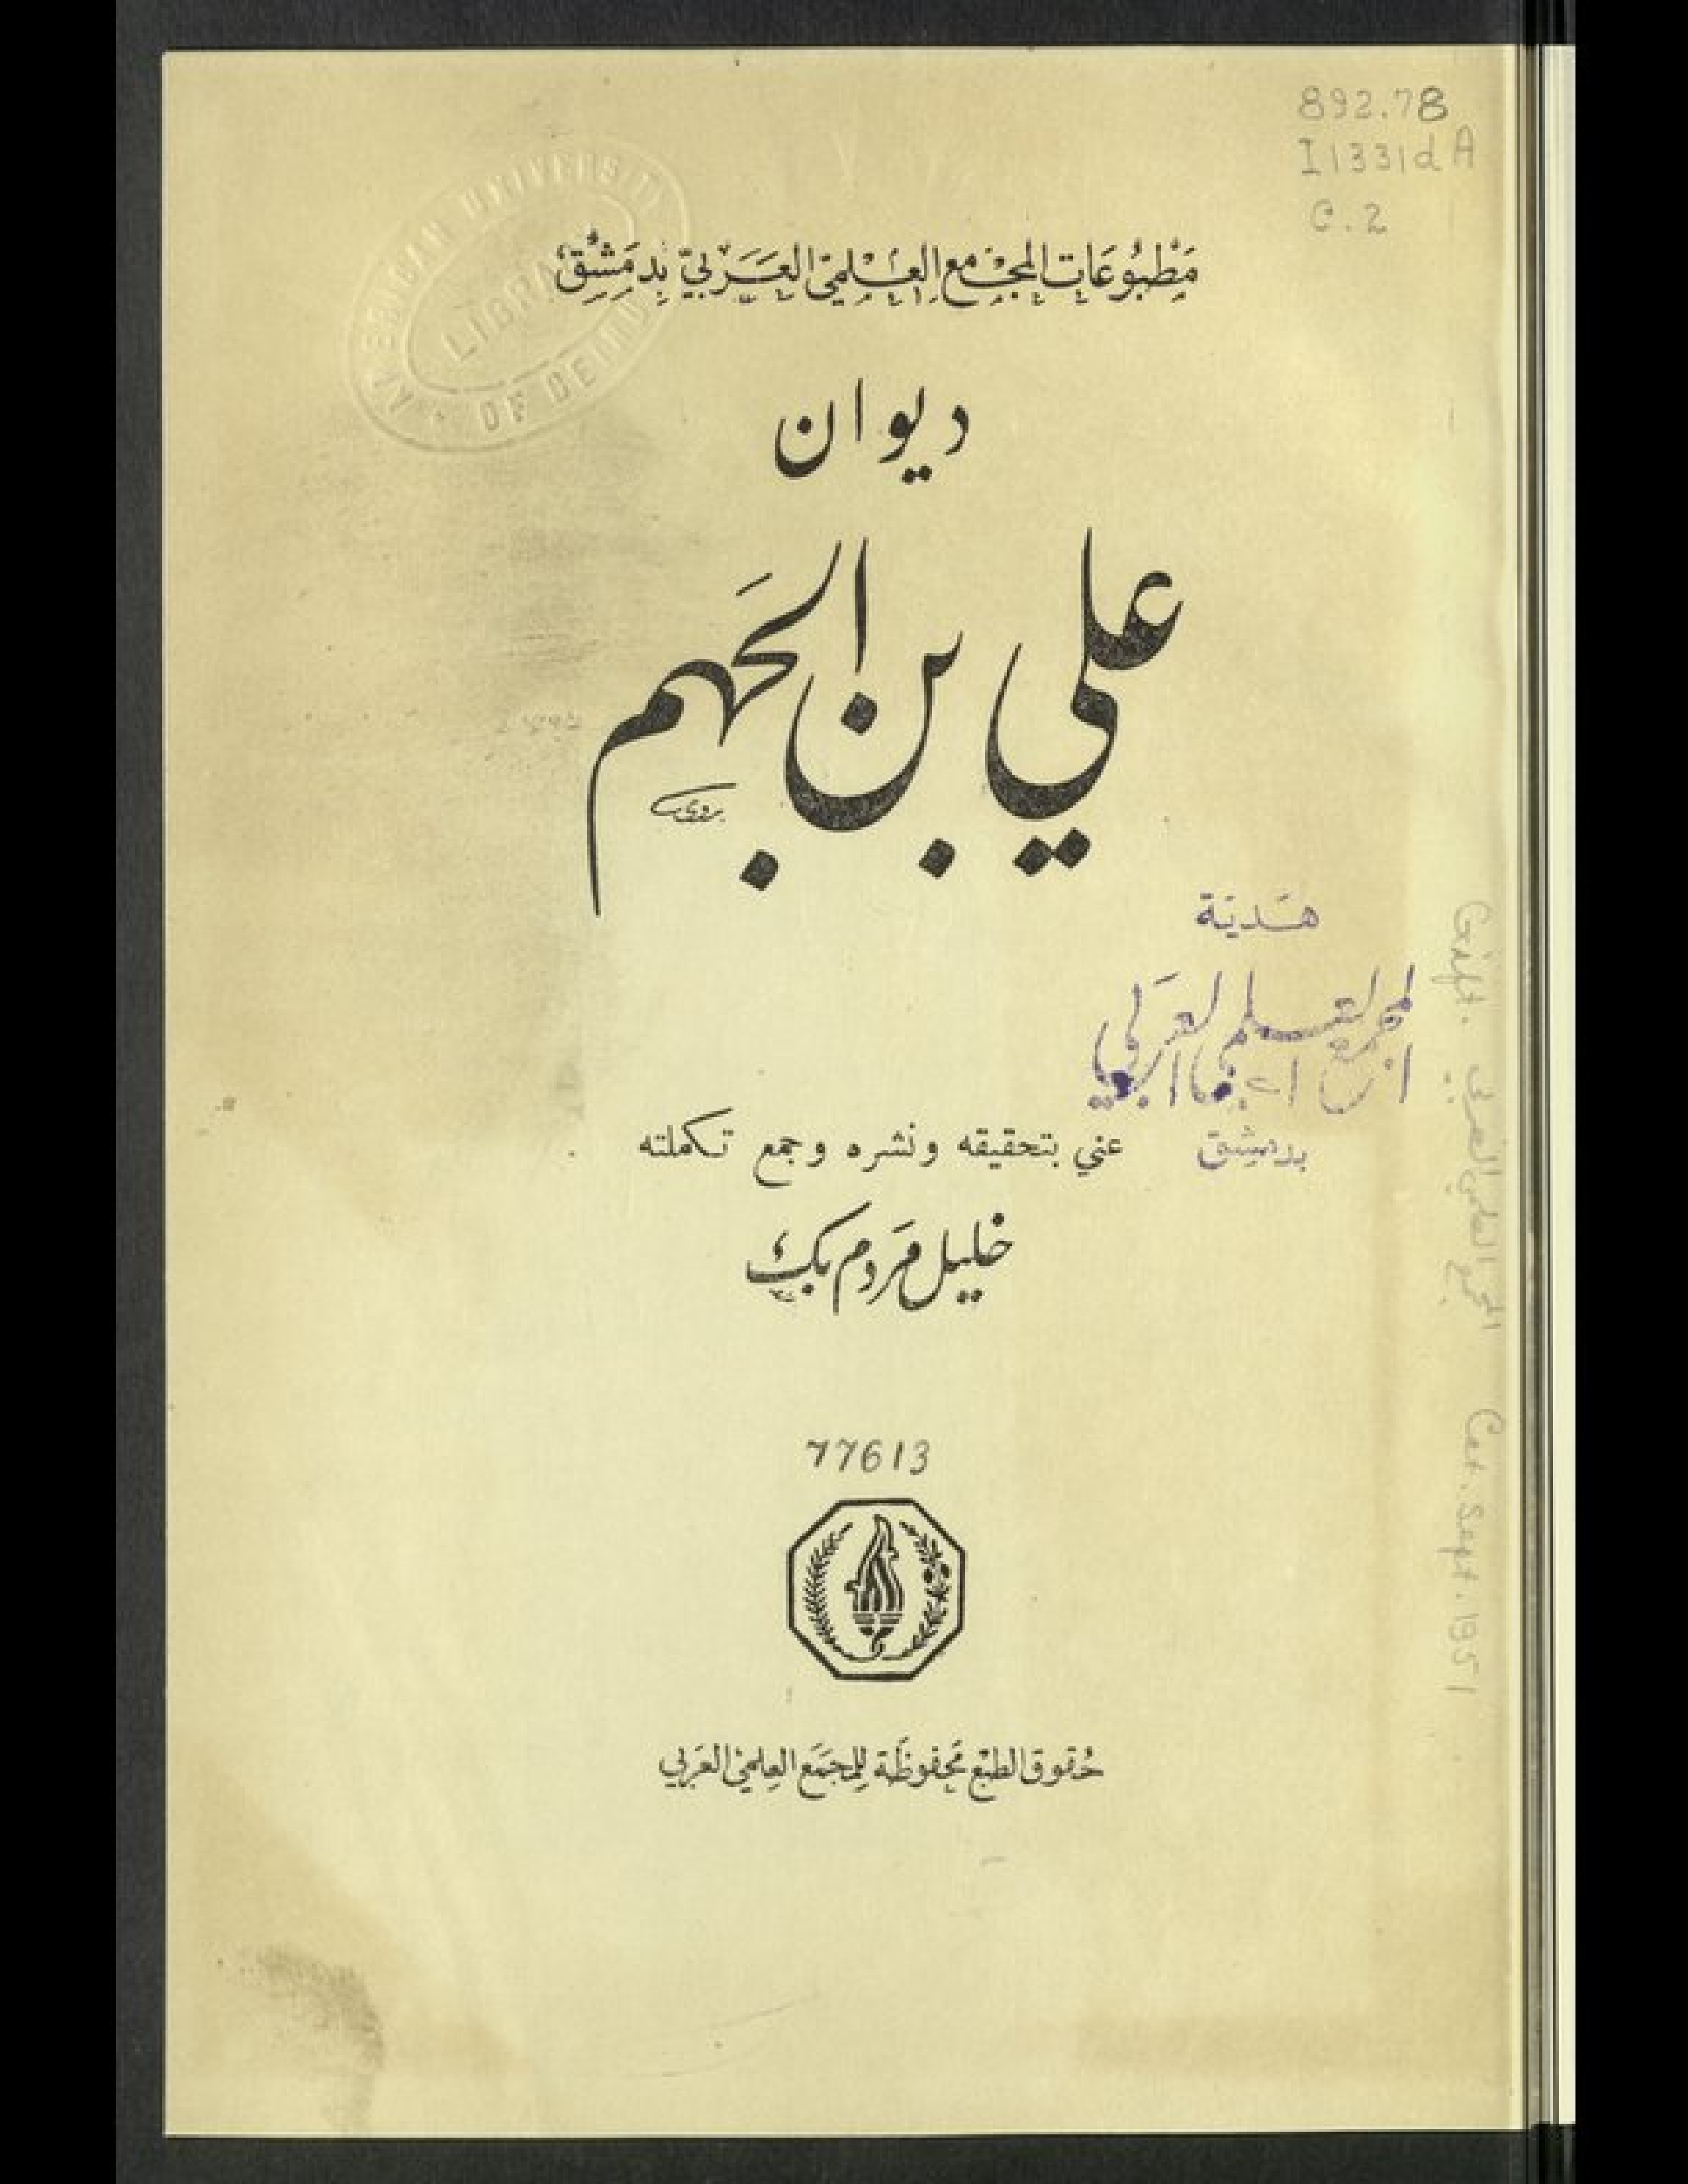 892.78
I1331dA
C.2
AMERICAN UNIVERSITY OF BEIRUT
LIBRARY
مَطْبُوعَات المجْمَع العِلمي العَرَبيّ بِدِمَشْق
ديوان
علي بن الجهم
هَدية
المجمع العلمي العربي
بدمشق
عني بتحقيقه ونشره وجمع تكملته
خليل مَردم بك
77613
حُقوق الطبْع مَحفوظَة لِلمجمَع العِلمي العَرَبي
Gift. المجمع العلمي العربي Cat. Sept. 1951